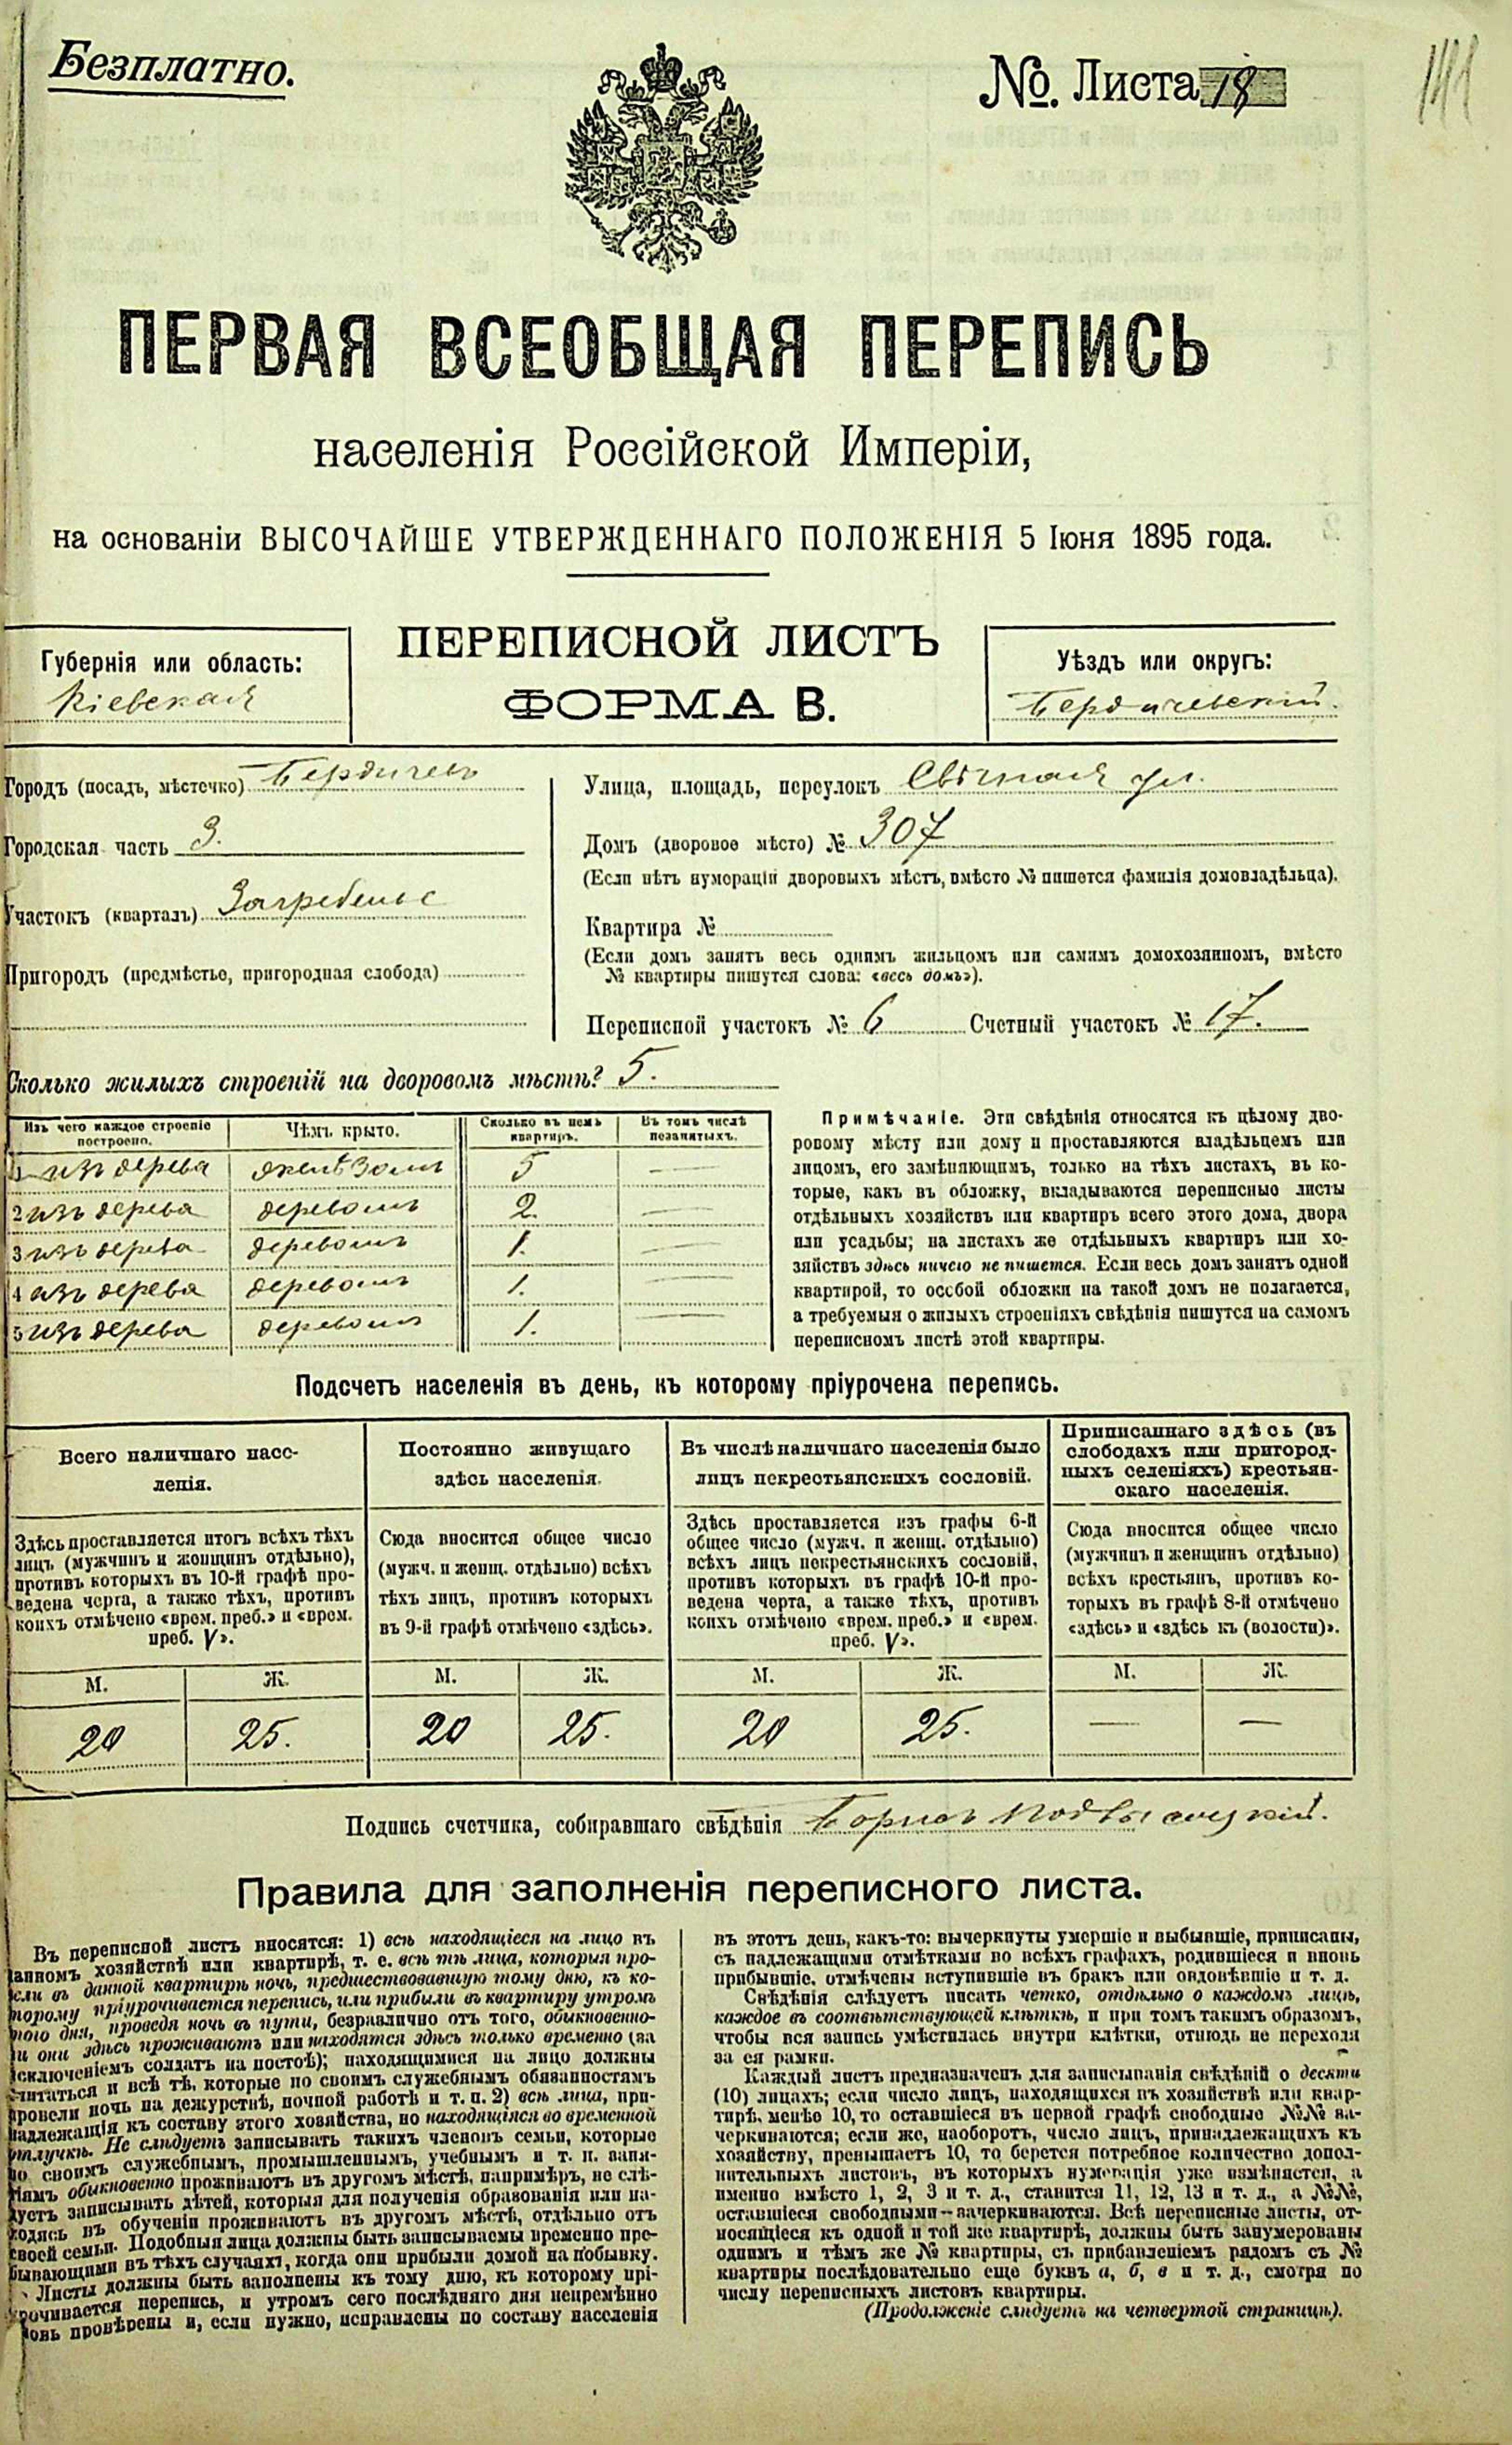 Безплатно.
№. Листа 18
ПЕРВАЯ ВСЕОБЩАЯ ПЕРЕПИСЬ
населенія Россійской Имперіи,
на основаніи ВЫСОЧАЙШЕ УТВЕРЖДЕННАГО ПОЛОЖЕНІЯ 5 Іюня 1895 года.
ПЕРЕПИСНОЙ ЛИСТЪ
ФОРМА В.
Губернія или область:
Кіевская
Уѣздъ или округъ:
Бердичевскій.
Городъ (посадъ, мѣстечко) Бердичевъ
Городская часть 3.
Участокъ (кварталъ)
Пригородъ (предмѣстье, пригородная слобода)
Улица, площадь, переулокъ ул.
Домъ (дворовое мѣсто) № 307
(Если нѣтъ нумераціи дворовыхъ мѣстъ, вмѣсто № пишется фамилія домовладѣльца).
Квартира №
(Если домъ занятъ весь однимъ жильцомъ или самимъ домохозяиномъ, вмѣсто
№ квартиры пишутся слова: «весь домъ»).
Переписной участокъ № 6 Счетный участокъ № 17.
Сколько жилыхъ строеній на дворовомъ мѣстѣ? 5.
Изъ чего каждое строеніе построено. Чѣмъ крыто. Сколько въ немъ квартиръ. Въ томъ числѣ незанятыхъ.
1 изъ дерева желѣзомъ 5 —
2 изъ дерева деревомъ 2. —
3 изъ дерева деревомъ 1. —
4 изъ дерева деревомъ 1. —
5 изъ дерева деревомъ 1. —
Примѣчаніе. Эти свѣдѣнія относятся къ цѣлому дво-
ровому мѣсту или дому и проставляются владѣльцемъ или
лицомъ, его замѣняющимъ, только на тѣхъ листахъ, въ ко-
торые, какъ въ обложку, вкладываются переписные листы
отдѣльныхъ хозяйствъ или квартиръ всего этого дома, двора
или усадьбы; на листахъ же отдѣльныхъ квартиръ или хо-
зяйствъ здѣсь ничего не пишется. Если весь домъ занятъ одной
квартирой, то особой обложки на такой домъ не полагается,
а требуемыя о жилыхъ строеніяхъ свѣдѣнія пишутся на самомъ
переписномъ листѣ этой квартиры.
Подсчетъ населенія въ день, къ которому пріурочена перепись.
Всего наличнаго насе-
ленія.
Здѣсь проставляется итогъ всѣхъ тѣхъ
лицъ (мужчинъ и женщинъ отдѣльно),
противъ которыхъ въ 10-й графѣ про-
ведена черта, а также тѣхъ, противъ
коихъ отмѣчено «врем. преб.» и «врем.
преб. V».
М. Ж.
20 25.
Постоянно живущаго
здѣсь населенія.
Сюда вносится общее число
(мужч. и женщ. отдѣльно) всѣхъ
тѣхъ лицъ, противъ которыхъ
въ 9-й графѣ отмѣчено «здѣсь».
М. Ж.
20 25.
Въ числѣ наличнаго населенія было
лицъ некрестьянскихъ сословій.
Здѣсь проставляется изъ графы 6-й
общее число (мужч. и женщ. отдѣльно)
всѣхъ лицъ некрестьянскихъ сословій,
противъ которыхъ въ графѣ 10-й про-
ведена черта, а также тѣхъ, противъ
коихъ отмѣчено «врем. преб.» и «врем.
преб. V».
М. Ж.
20 25.
Приписаннаго здѣсь (въ
слободахъ или пригород-
ныхъ селеніяхъ) крестьян-
скаго населенія.
Сюда вносится общее число
(мужчинъ и женщинъ отдѣльно)
всѣхъ крестьянъ, противъ ко-
торыхъ въ графѣ 8-й отмѣчено
«здѣсь» и «здѣсь къ (волости)».
М. Ж.
— —
Подпись счетчика, собиравшаго свѣдѣнія Борисъ
Правила для заполненія переписного листа.
Въ переписной листъ вносятся: 1) всѣ находящіеся на лицо въ
данномъ хозяйствѣ или квартирѣ, т. е. всѣ тѣ лица, которыя про-
вели въ данной квартирѣ ночь, предшествовавшую тому дню, къ ко-
торому пріурочивается перепись, или прибыли въ квартиру утромъ
того дня, проведя ночь въ пути, безразлично отъ того, обыкновенно-
ли они здѣсь проживаютъ или находятся здѣсь только временно (за
исключеніемъ солдатъ на постоѣ); находящимися на лицо должны
считаться и всѣ тѣ, которые по своимъ служебнымъ обязанностямъ
провели ночь на дежурствѣ, ночной работѣ и т. п. 2) всѣ лица, при-
надлежащія къ составу этого хозяйства, но находящіяся во временной
отлучкѣ. Не слѣдуетъ записывать такихъ членовъ семьи, которые
по своимъ служебнымъ, промышленнымъ, учебнымъ и т. п. заня-
тіямъ обыкновенно проживаютъ въ другомъ мѣстѣ, напримѣръ, не слѣ-
дуетъ записывать дѣтей, которыя для полученія образованія или на-
ходясь въ обученіи проживаютъ въ другомъ мѣстѣ, отдѣльно отъ
своей семьи. Подобныя лица должны быть записываемы временно пре-
бывающими въ тѣхъ случаяхъ, когда они прибыли домой на побывку.
Листы должны быть заполнены къ тому дню, къ которому прі-
урочивается перепись, и утромъ сего послѣдняго дня непремѣнно
вновь провѣрены и, если нужно, исправлены по составу населенія
въ этотъ день, какъ-то: вычеркнуты умершіе и выбывшіе, приписаны,
съ надлежащими отмѣтками во всѣхъ графахъ, родившіеся и вновь
прибывшіе, отмѣчены вступившіе въ бракъ или овдовѣвшіе и т. д.
Свѣдѣнія слѣдуетъ писать четко, отдѣльно о каждомъ лицѣ,
каждое въ соотвѣтствующей клѣткѣ, и при томъ такимъ образомъ,
чтобы вся запись умѣстилась внутри клѣтки, отнюдь не переходя
за ея рамки.
Каждый листъ предназначенъ для записыванія свѣдѣній о десяти
(10) лицахъ; если число лицъ, находящихся въ хозяйствѣ или квар-
тирѣ, менѣе 10, то оставшіеся въ первой графѣ свободные №№ за-
черкиваются; если же, наоборотъ, число лицъ, принадлежащихъ къ
хозяйству, превышаетъ 10, то берется потребное количество допол-
нительныхъ листовъ, въ которыхъ нумерація уже измѣняется, а
именно вмѣсто 1, 2, 3 и т. д., ставится 11, 12, 13 и т. д., а №№,
оставшіеся свободными—зачеркиваются. Всѣ переписные листы, от-
носящіеся къ одной и той же квартирѣ, должны быть занумерованы
однимъ и тѣмъ же № квартиры, съ прибавленіемъ рядомъ съ №
квартиры послѣдовательно еще буквъ а, б, в и т. д., смотря по
числу переписныхъ листовъ квартиры.
(Продолженіе слѣдуетъ на четвертой страницѣ).